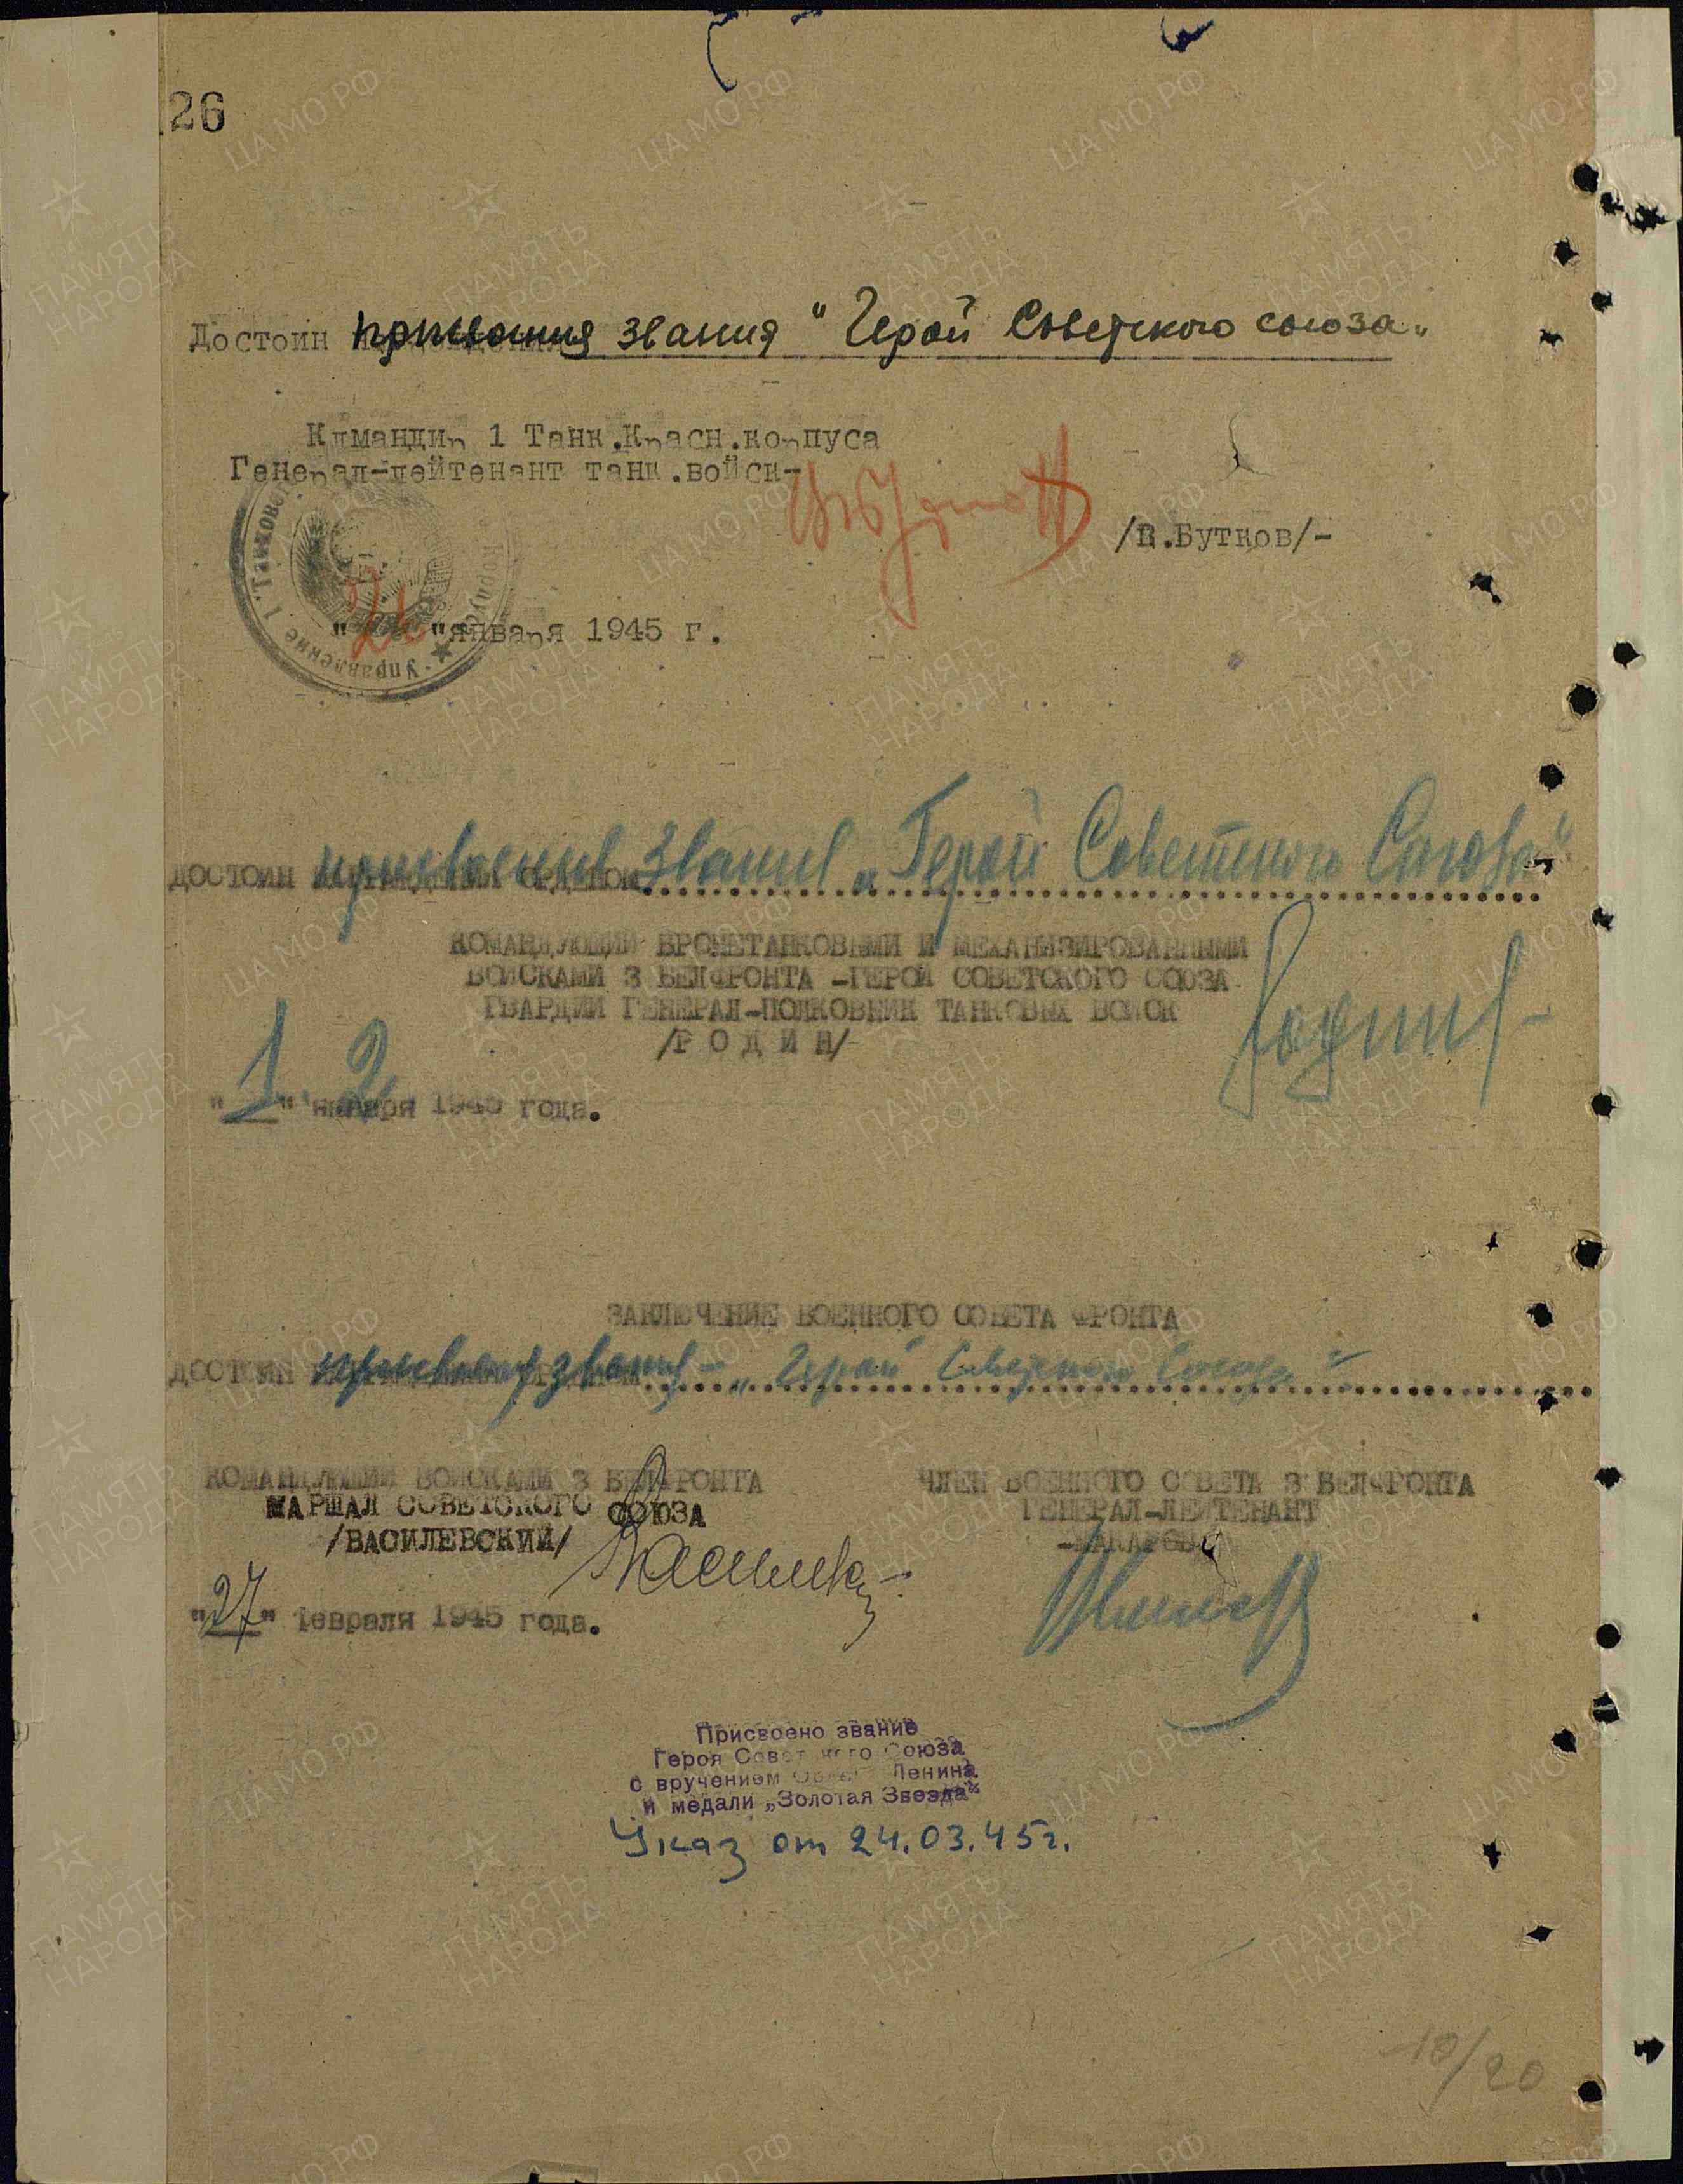 26
Достоин присвоения звания "Герой Советского союза"
Командир 1 Танк.Красн.корпуса
Генерал-лейтенант танк.войск-
/В.Бутков/-
Управление 1 Танковог корпуса
" "января 1945 г.
ДОСТОИН присвоения звания „Герой Советского Союза"
КОМАНДУЮЩИЙ БРОНЕТАНКОВЫМИ И МЕХАНИЗИРОВАННЫМИ
ВОЙСКАМИ 3 БЕЛФРОНТА -ГЕРОЙ СОВЕТСКОГО СОЮЗА
ГВАРДИИ ГЕНЕРАЛ-ПОЛКОВНИК ТАНКОВЫХ ВОЙСК
/Р О Д И Н/
Родин
"1" 2 января 1945 года.
ЗАКЛЮЧЕНИЕ ВОЕННОГО СОВЕТА ФРОНТА
ДОСТОИН присвоения звания - „Герой Советского Союза"
КОМАНДУЮЩИЙ ВОЙСКАМИ 3 БЕЛФРОНТА
МАРШАЛ СОВЕТСКОГО СОЮЗА
/ВАСИЛЕВСКИЙ/
ЧЛЕН ВОЕННОГО СОВЕТА 3 БЕЛФРОНТА
ГЕНЕРАЛ-ЛЕЙТЕНАНТ
-МАКАРОВ
"27" февраля 1945 года.
Присвоено звание
Героя Советского Союза
с вручением Ордена Ленина
и медали „Золотая Звезда"
Указ от 24.03.45г.
10/20
ЦАМО.РФ
ПАМЯТЬ
НАРОДА